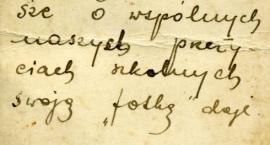 sze o wspólnych
naszych przeży
ciach szkolnych
swoją „fotkę" daję